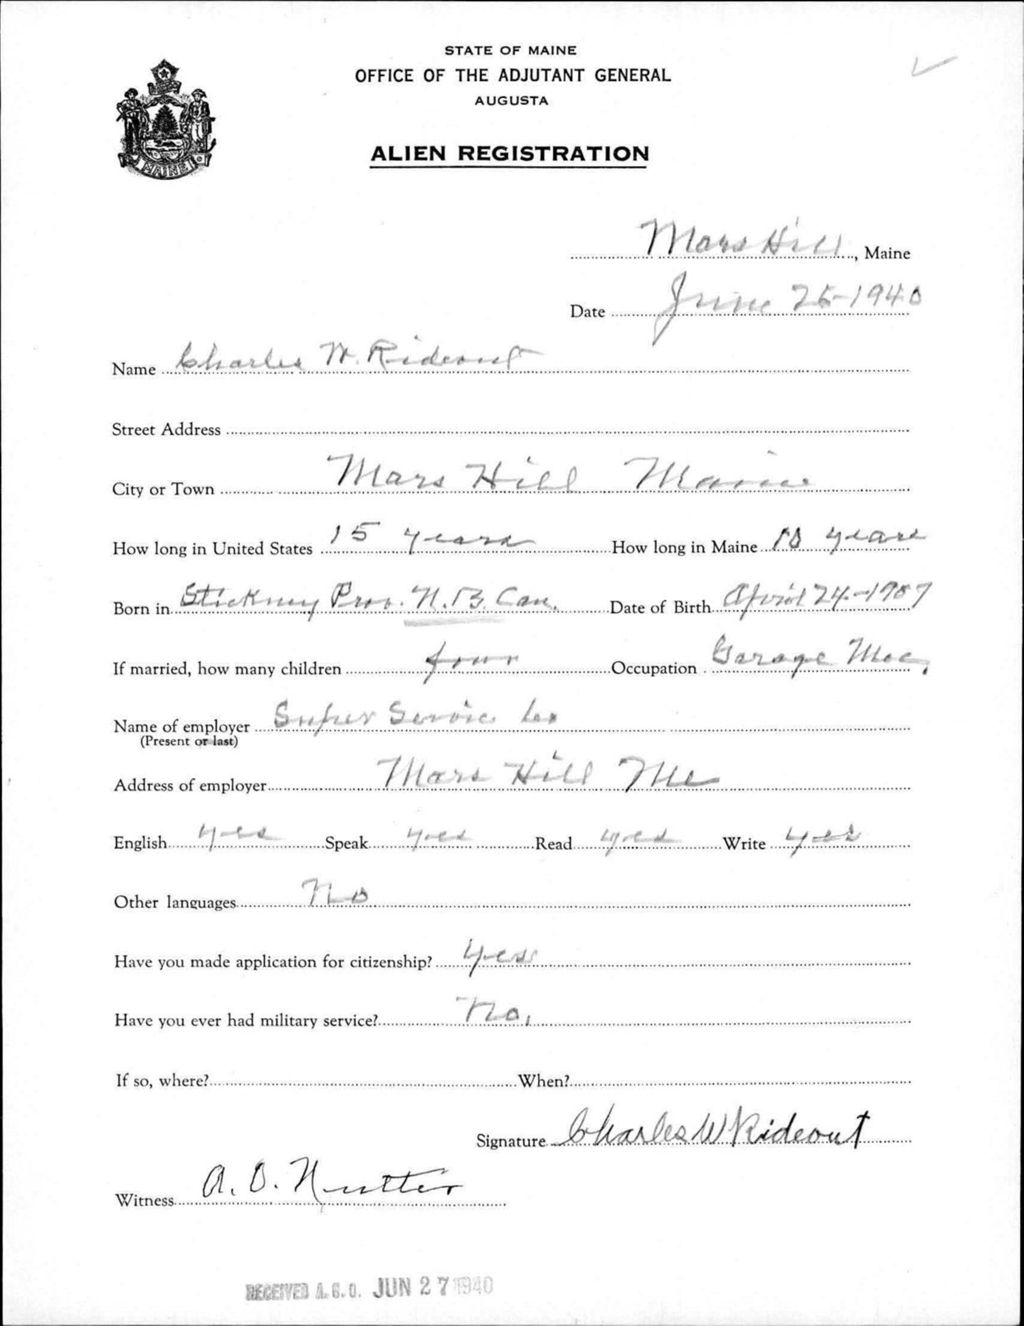 STATE OF MAINE
OFFICE OF THE ADJUTANT GENERAL
AUGUSTA
ALIEN REGISTRATION
MAINE
Mars Hill, Maine
Date June 25-1940
Name Charles W. Rideout
Street Address
City or Town Mars Hill Maine
How long in United States 15 years How long in Maine 10 years
Born in Stickney Prov. N.B. Can. Date of Birth April 24-1907
If married, how many children four Occupation Garage Mec.
Name of employer Super Service
(Present or last)
Address of employer Mars Hill Me
English yes Speak yes Read yes Write yes
Other languages No
Have you made application for citizenship? yes
Have you ever had military service? No.
If so, where? When?
Signature Charles W Rideout
Witness A. O. Nutter
RECEIVED A.G.O. JUN 27 1940